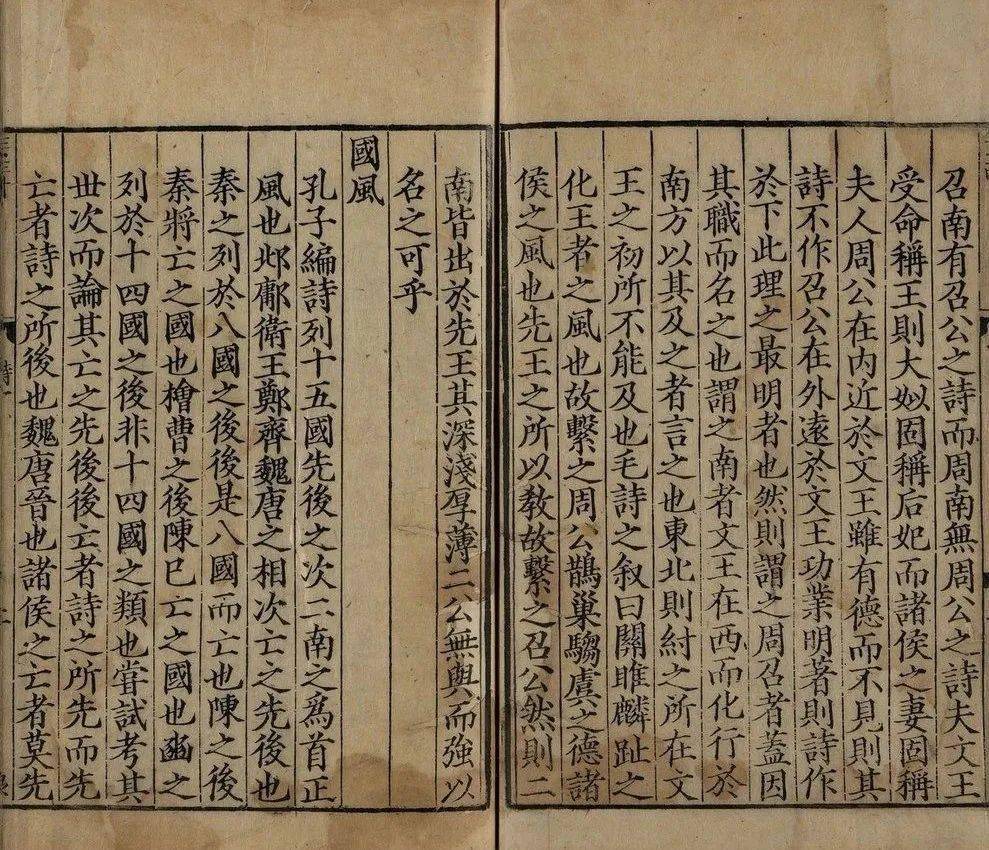 召南有召公之詩而周南無周公之詩夫文王
受命稱王則大姒固稱后妃而諸侯之妻固稱
夫人周公在内近於文王雖有德而不見則其
詩不作召公在外逺於文王功業明著則詩作
於下此理之最明者也然則謂之周召者蓋因
其職而名之也謂之南者文王在西而化行於
南方以其及之者言之也東北則紂之所在文
王之初所不能及也毛詩之叙曰關雎麟趾之
化王者之風也故繫之周公鵲巢騶虞之德諸
侯之風也先王之所以教故繫之召公然則二
南皆出於先王其深淺厚薄二公無與而强以
名之可乎
國風
孔子編詩列十五國先後之次二南之為首正
風也邶鄘衛王鄭齊魏唐之相次亡之先後也
秦之列於八國之後後是八國而亡也陳之後
秦將亡之國也檜曹之後陳已亡之國也豳之
列於十四國之後非十四國之類也嘗試考其
世次而論其亡之先後後亡者詩之所先而先
亡者詩之所後也魏唐晉也諸侯之亡者莫先
詩一